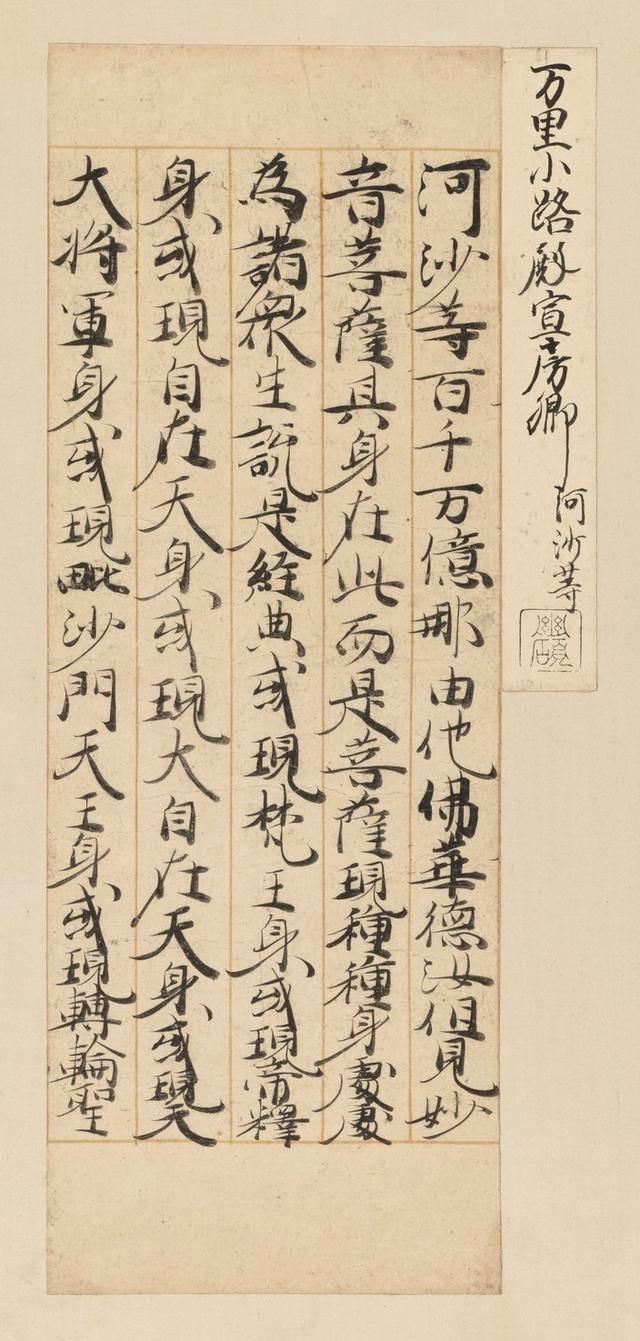 万里小路殿宣房卿 河沙等
河沙等百千万億那由他佛華德汝但見妙
音菩薩其身在此而是菩薩現種種身處處
為諸衆生説是經典或現梵王身或現帝釋
身或現自在天身或現大自在天身或現天
大将軍身或現毗沙門天王身或現轉輪聖